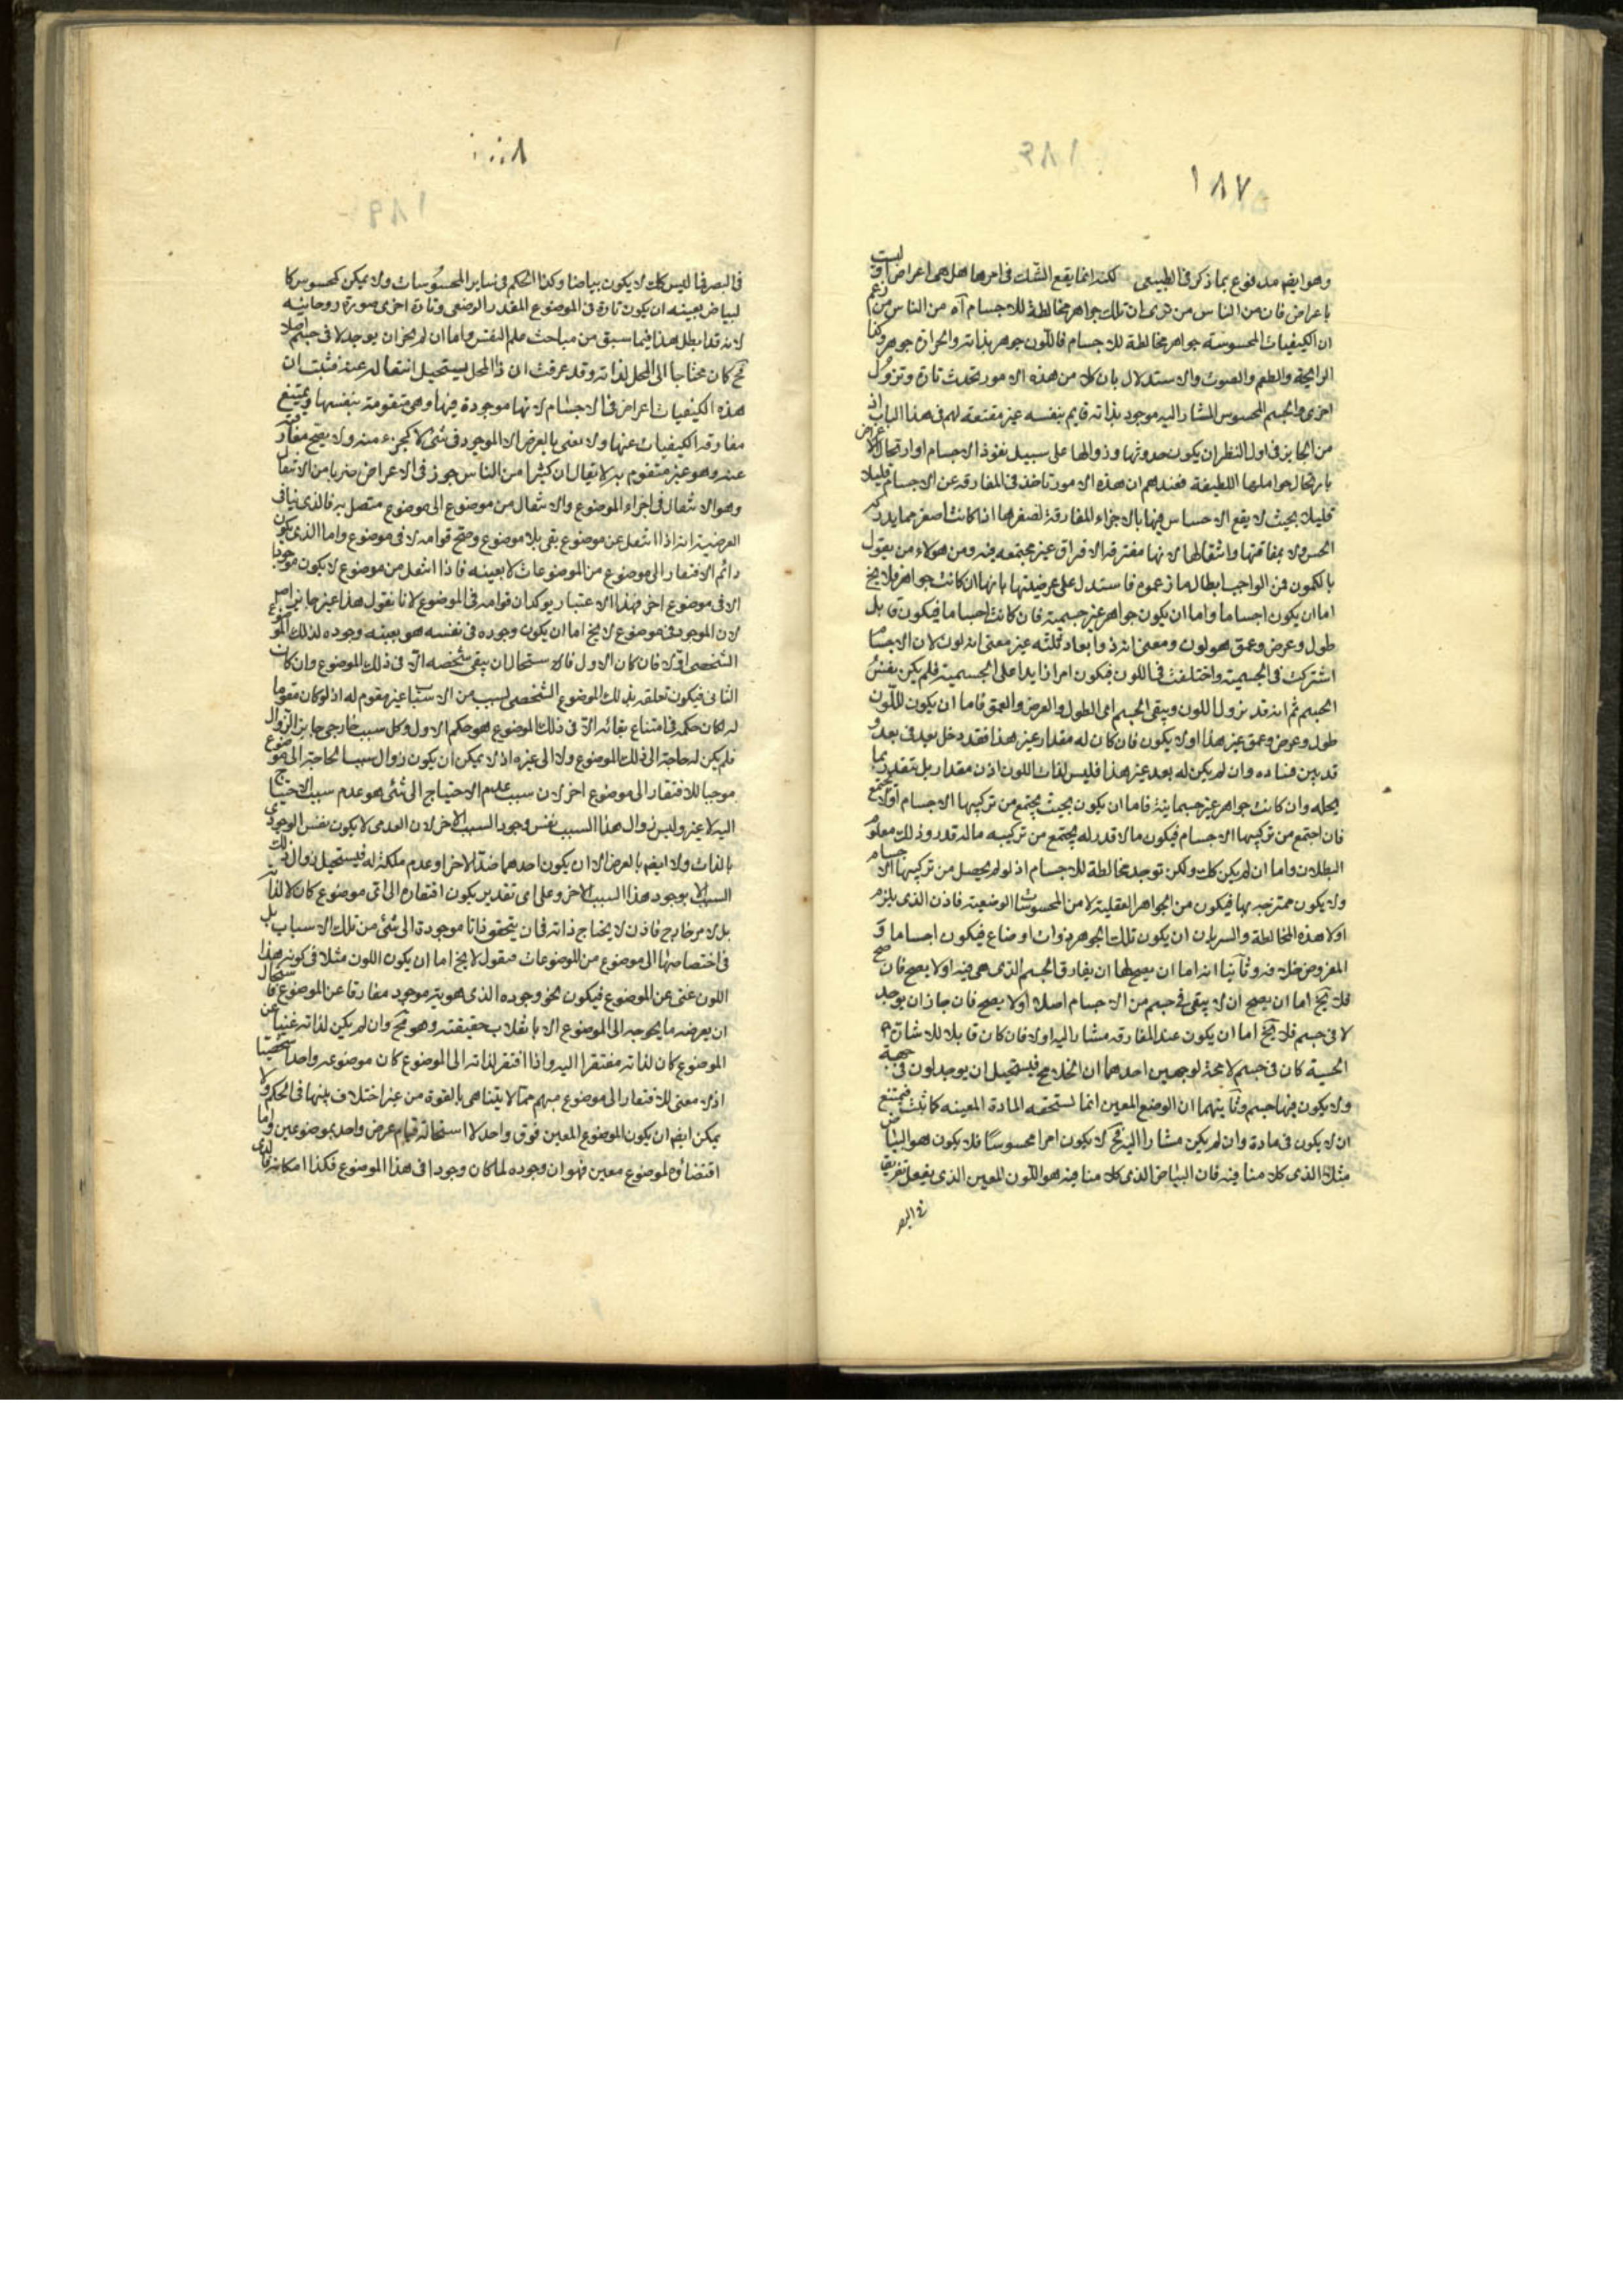 ١٨٧
وهو ايضم مدفوع بما ذكر فى الطبيعى لكنه انما يقع الشك فى امرها هل هى اعراض او ليست
باعراض فان من الناس من ترى ان تلك جواهر مخالطة للاجسام آه من الناس من زعم
ان الكيفيات المحسوسة جواهر مخالطة للاجسام فاللون جوهر بذاته والحرارة جوهر وكذا
الرايحة والطعم والصوت والاستدلال بان كلا من هذه الامور تحدث تارة وتزول
اخرى والجسم المحسوس المشار اليه موجود بذاته قايم بنفسه غير مقنعة لهم فى هذا الباب اذ
من الجايز فى اول النظر ان يكون حدوثها وزوالها على سبيل نفوذ الاجسام او ارتحال الاعراض
بارتحال حواملها اللطيفة فعندهم ان هذه الامور تاخذ فى المفارقة عن الاجسام قليلا
قليلا بحيث لا يقع الاحساس فيها بالاجزاء المفارقة لصغرها اذا كانت اصغر مما يدركه
الحس ولا بمفارقتها وانتقالها لانها مفترقة الافتراق غير مجتمعة فيه ومن هولاء من يقول
بالكمون فمن الواجب ابطال ما زعموه فاستدل على عرضيتها بانها ان كانت جواهر فلا يخ
اما ان يكون اجساما واما ان يكون جواهر غير جسمية فان كانت اجساما فيكون قابل
طول وعرض وعمق هو لون ومعنى انه ذو ابعاد ثلثه غير معنى انه لون لان الاجسام
اشتركت فى الجسمية واختلفت فى اللون فيكون امرا زايدا على الجسمية فلم يكن نفس
الجسم ثم انه قد يزول اللون ويبقى الجسم اعى الطول والعرض والعمق فاما ان يكون للون
طول وعرض وعمق غير هذا اولا يكون فان كان له مقدار غير هذا فقد دخل بعد فى بعد و
قد بين فساده وان لم يكن له بعد غير هذا فليس لذات اللون اذن مقدار بل يتقدر بما
يحله وان كانت جواهر غير جسمانية فاما ان يكون بحيث يجتمع من تركيبها الاجسام اولا يجتمع
فان اجتمع من تركيبها الاجسام فيكون ما لا قدر له يجتمع من تركيبه ماله قدر وذلك معلوم
البطلان واما ان لم يكن كك ولكن توجد مخالطة للاجسام اذ لو لم يحصل من تركيبها الاجسام
ولا يكون ممتزجة بها فيكون من الجواهر العقلية لا من المحسوسات الوضعية فاذن الذى يلزم
اولا هذه المخالطة والسريان ان يكون تلك الجوهر ذوات اوضاع فيكون اجساما و
المفروض خلافه وثانيا انه اما ان يصح لها ان يفارق الجسم الذى هى فيه اولا يصح فان صح
فلا يخ اما ان يصح ان لا يبقى فى جسم من الاجسام اصلا اولا يصح فان جاز ان يوجد
لا فى جسم فلا يخ اما ان يكون عند المفارقة مشارا اليه اولا فان كان قابلا للاشارة
الحسية كان فى جسم لا محة لوجهين احدهما ان الخلا مح فيستحيل ان يوجد لون فى جهة
ولا يكون فيها جسم وثانيهما ان الوضع المعين انما تستحقه المادة المعينه كما ثبت فيمتنع
ان لا يكون فى مادة وان لم يكن مشارا اليه فح لا يكون امرا محسوسا فلا يكون هو البياض
مثلا الذى كلامنا فيه فان البياض الذى كلامنا فيه هو اللون المعين الذى يفعل تفريقا
فى البصر
٨
فى البصر فما ليس كك لا يكون بياضا وكذا الحكم فى ساير المحسوسات ولا يمكن لمحسوس كا
لبياض بعينه ان يكون تارة فى الموضوع المقدر الوضعى وتارة اخرى صورة روحانيه
لانه قد ابطل هذا فيما سبق من مباحث علم النفس واما ان لم يجز ان يوجد لا فى جسم اصلا
فح كان محتاجا الى المحل لذاته وقد عرفت ان ذا المحل يستحيل انتقاله عنه فثبت ان
هذه الكيفيات اعراض فى الاجسام لانها موجودة فيها وهى متقومة بنفسها ويمتنع
مفارقة الكيفيات عنها ولا نعنى بالعرض الا الموجود فى شئ لا كجزء منه ولا يصح مفارقته
عنه وهو غير متقوم به لا يقال ان كثيرا من الناس جوز فى الاعراض ضربا من الانتقال
وهو الانتقال فى اجزاء الموضوع والانتقال من موضوع الى موضوع متصل به فالذى ينافى
العرضية انه اذا انتقل عن موضوع بقى بلا موضوع وصح قوامه لا فى موضوع واما الذى يكون
دائم الافتقار الى موضوع من الموضوعات لا بعينه فاذا انتقل من موضوع لا يكون موجودا
الا فى موضوع اخر فهذا الاعتبار يوكد ان قوامه فى الموضوع لانا نقول هذا غير جايز اصلا
لان الموجود فى موضوع لا يخ اما ان يكون وجوده فى نفسه هو بعينه وجوده لذلك الموضوع
الشخصى اولا فان كان الاول فالاستحال ان يبقى شخصه الا فى ذلك الموضوع وان كان
الثانى فيكون تعلقه بذلك الموضوع الشخصى لسبب من الاسباب غير مقوم له اذ لو كان مقوما
له لكان حكمه فى امتناع بقائه الا فى ذلك الموضوع هو حكم الاول وكل سبب خارجى جايز الزوال
فلم يكن له حاجة الى ذلك الموضوع ولا الى غيره اذ لا يمكن ان يكون زوال سبب الحاجة الى موضوع
موجبا للافتقار الى موضوع اخر لان سبب عدم الاحتياج الى شئى هو عدم سبب الاحتياج
اليه لا غير وليس زوال هذا السبب نفس وجود السبب الاخر لان العدمى لا يكون نفس الوجودى
بالذات ولا ايضم بالعرض الا ان يكون احدهما ضد الاخر او عدم ملكة له فيستحيل زوال ذلك
السبب الا بوجود هذا السبب الاخر وعلى اى تقدير يكون افتقاره الى اى موضوع كان لا لذاته
بل لامر خارج فاذن لا يحتاج ذاته فى ان يتحقق ذاتا موجودة الى شئى من تلك الاسباب بل
فى اختصاصها الى موضوع من الموضوعات فنقول لا يخ اما ان يكون اللون مثلا فى كونه هذا
اللون غنى عن الموضوع فيكون نحو وجوده الذى هو به موجود مفارقا عن الموضوع فاستحال
ان يعرضه ما يحوجه الى الموضوع الا بانقلاب حقيقته وهو مح وان لم يكن لذاته غنيا عن
الموضوع كان لذاته مفتقرا اليه واذا افتقر لذاته الى الموضوع كان موضوعه واحدا شخصيا
اذ لا معنى للافتقار الى موضوع مبهم مما لا يتناهى بالقوة من غير اختلاف بينها فى الحكم ولا
يمكن ايضم ان يكون الموضوع المعين فوق واحد لا استحالة قيام عرض واحد بموضوعين واما
اقتضاؤه لموضوع معين فهو ان وجوده لما كان وجودا فى هذا الموضوع فكذا امكانه فالذى